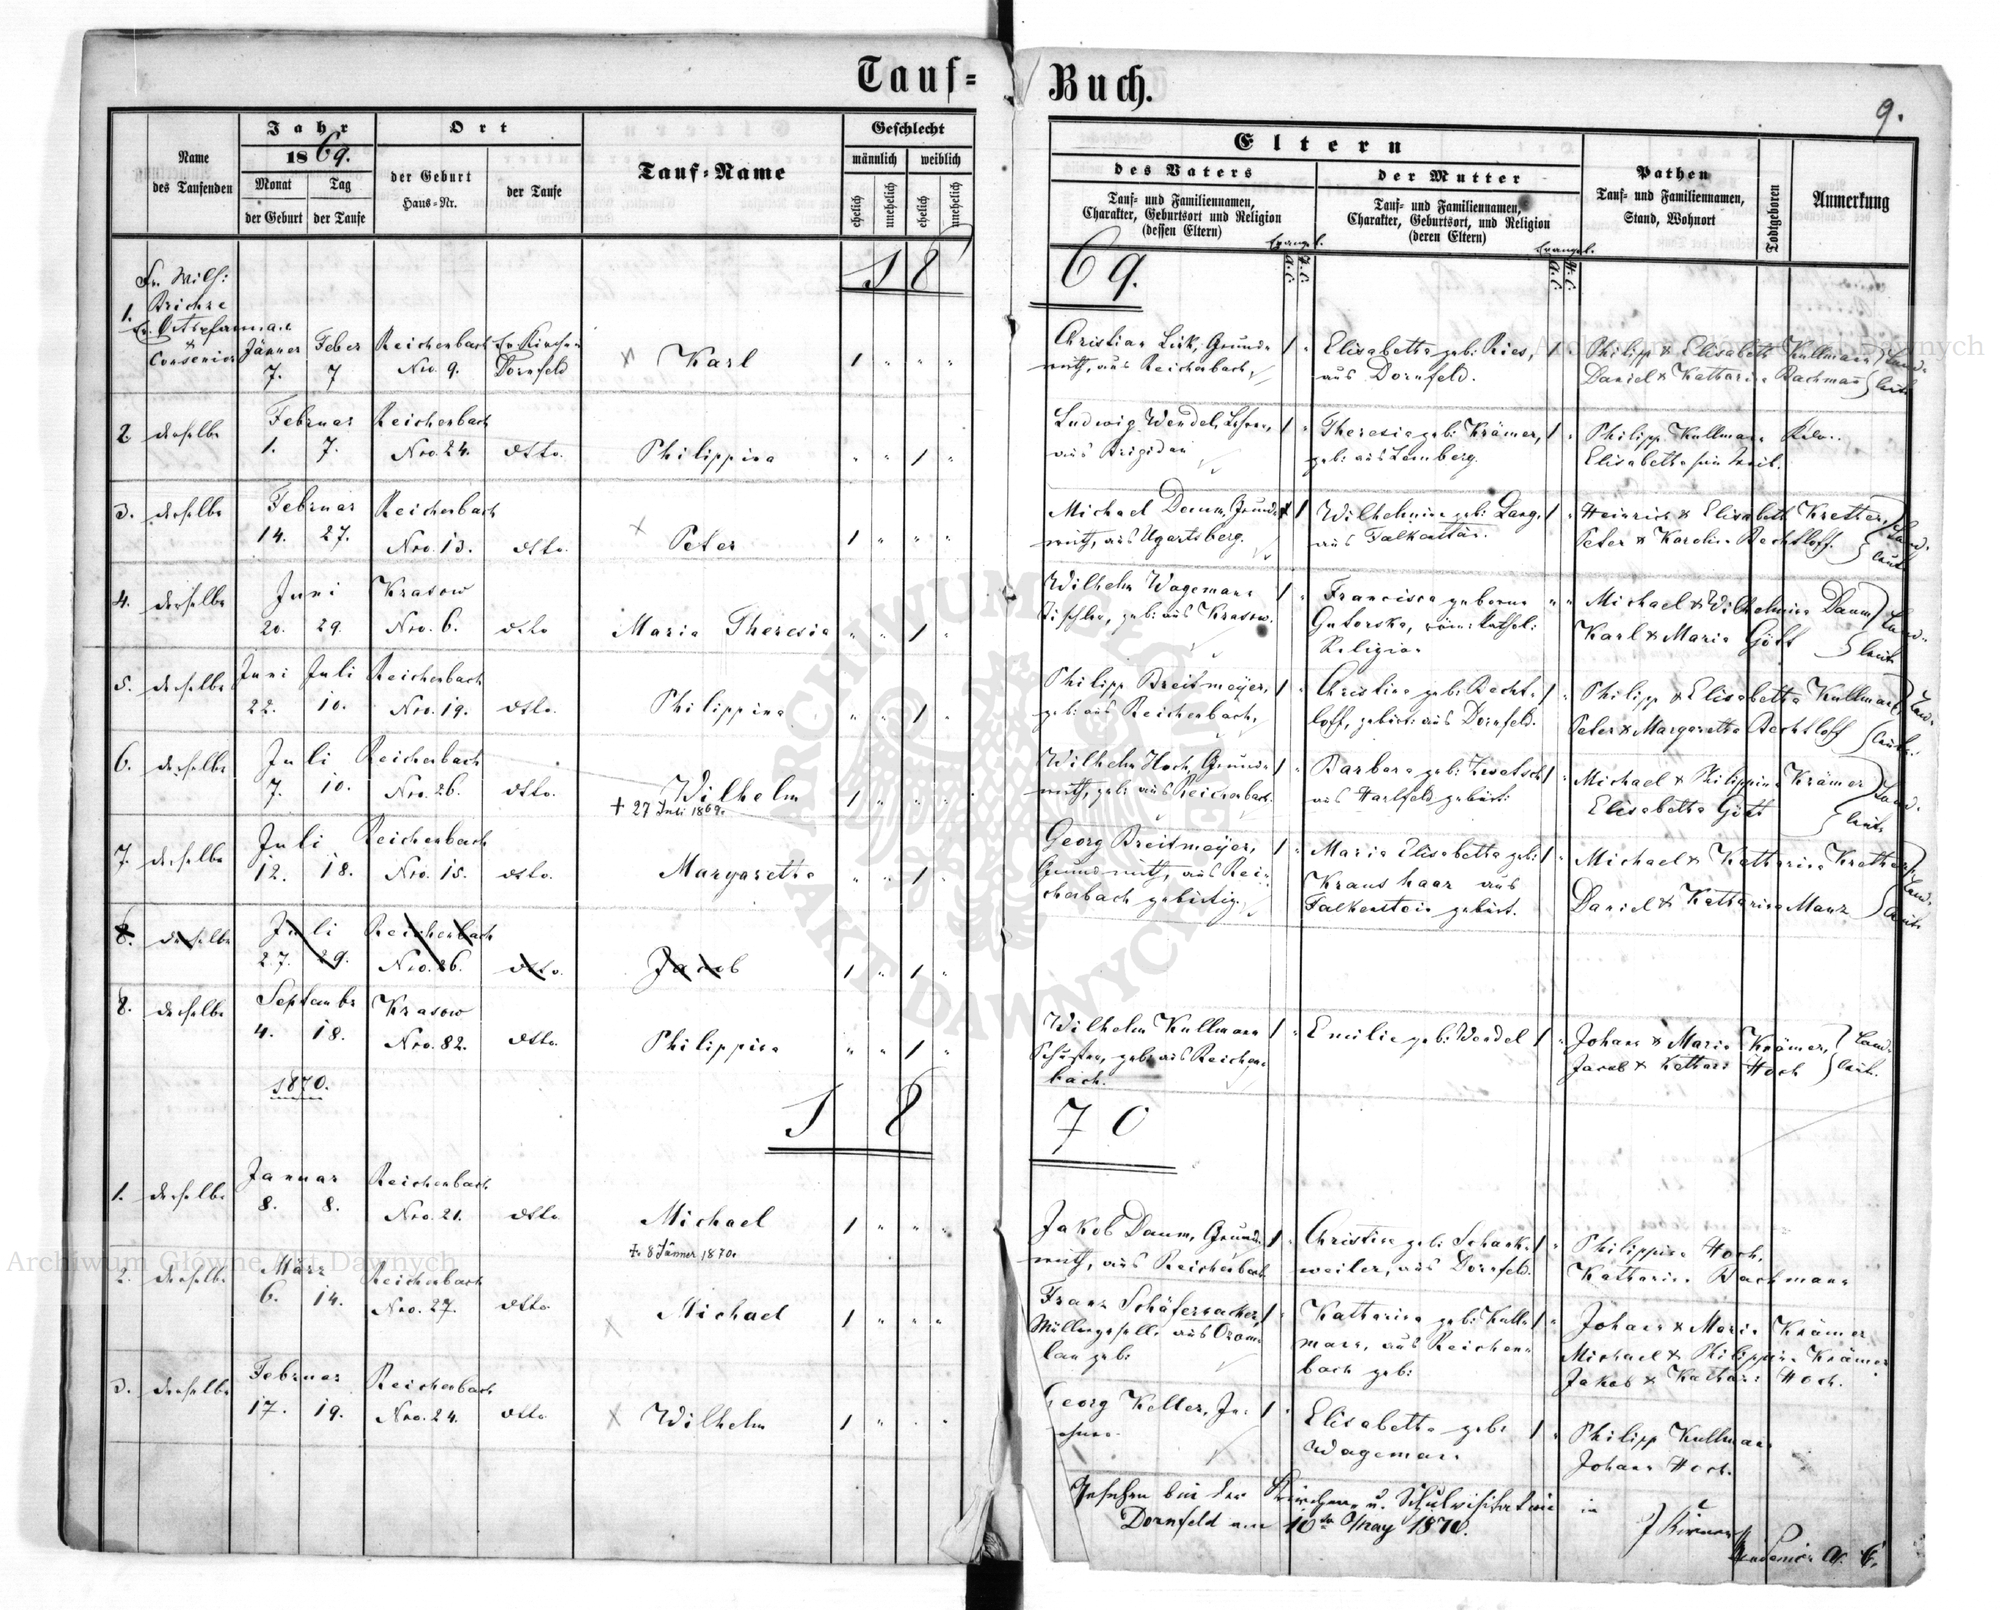 Tauf= Buch.
9.
Name des Taufenden
Jahr
1869.
Monat Tag
der Geburt der Taufe
Ort
der Geburt Haus=Nr.
der Taufe
Tauf=Name
Geschlecht
männlich weiblich
ehelich unehelich ehelich unehelich
Eltern
des Vaters
Tauf= und Familiennamen, Charakter, Geburtsort und Religion (dessen Eltern)
der Mutter
Tauf= und Familiennamen, Charakter, Geburtsort, und Religion (deren Eltern)
Evangel. Evangel.
A.C. H.C. A.C. H.C.
Pathen
Tauf= und Familiennamen, Stand, Wohnort
Todtgeboren
Anmerkung
1869.
1. Fr. Wilh:
Consenior Jänner Feber Reichenbach
7. 7 Nro. 9. Dornfeld Karl 1 " " "
Christian Grund=
wirth, aus Reichenbach,
Elisabetha geb: Ries,
aus Dornfeld.
Philipp & Elisabeth Kullmann
Daniel & Katharina Bachmann
Land=
leute
2. derselbe Februar Reichenbach
1. 7. Nro. 24. dtto. Philippina " " 1 "
Ludwig Wendel, Lehrer,
aus Brigidau
Theresia geb: Krämer,
geb: aus Lemberg.
Philipp Kullmann
Elisabetha sein Weib.
3. derselbe Februar Reichenbach
14. 27. Nro. 13. dtto. Peter 1 " " "
Michael Daum, Grund=
wirth, aus Ugartsberg.
Wilhelmine geb: Lang,
aus
Heinrich & Elisabeth Kretter,
Peter & Karolin Rechtloff.
Land=
leute
4. derselbe Juni Krasow
20. 29. Nro. 6. dtto Maria Theresia " " 1 "
Wilhelm Wagemann
Tischler, geb: aus Krasow.
Francisca geborne
Gutorska, röm: kathol:
Religion
Michael & Wilhelmine Daum
Karl & Maria Gött
Land=
leute
5. derselbe Juni Juli Reichenbach
22. 10. Nro. 19. dtto. Philippina " " 1 "
Philipp Breitmeyer,
geb: aus Reichenbach,
Christina geb: Recht=
loff, gebürt: aus Dornfeld.
Philipp & Elisabetha Kullmann
Peter & Margaretha Rechtloff
Land=
leute.
6. derselbe Juli Reichenbach
7. 10. Nro. 26. dtto. Wilhelm 1 " " "
+ 27 Juli 1869.
Wilhelm Hoch, Grund=
wirth, geb: aus Reichenbach.
Barbara geb:
aus Hartfeld gebürt:
Michael & Philippina Krämer
Elisabetha Gött
Land=
leute
7. derselbe Juli Reichenbach
12. 18. Nro. 15. dtto. Margaretha " " 1 "
Georg Breitmeyer,
Grundwirth, aus Rei=
chenbach gebürtig.
Maria Elisabetha geb:
Kraushaar aus
Falkenstein gebürt.
Michael & Katharina Kretter
Daniel & Katharina Manz
Land=
leute
8. derselbe Juli Reichenbach
27. 29. Nro. 26. dtto. Jacob 1 " 1 "
8. derselbe September Krasow
4. 18. Nro. 82. dtto. Philippina " " 1 "
Wilhelm Kullmann
Schuster, geb: aus Reichen=
bach.
Emilie geb: Wendel
Johann & Maria Krämer,
Jacob & Kathari Hoch
Land=
leute.
1870.
1870
1. derselbe Januar Reichenbach
8. 8. Nro. 21. dtto. Michael 1 " " "
+ 8 Jänner 1870.
Jakob Daum, Grund=
wirth, aus Reichenbach
Christina geb: Schank=
weiler, aus Dornfeld.
Philippina Hoch,
Katharina Bachmann
2. derselbe März Reichenbach
6. 14. Nro. 27. dtto. Michael 1 " " "
Franz
Müllergeselle aus
lau geb:
Katharina geb: Kull=
mann, aus Reichen=
bach geb:
Johann & Maria Krämer
Michael & Philippina Krämer
Jakob & Kathari Hoch.
3. derselbe Februar Reichenbach
17. 19. Nro. 24. dtto. Wilhelm 1 " " "
Georg Keller, In=
wohner
Elisabetha geb:
Wagemann
Philipp Kullmann
Johann Hoch.
Gesehen bei der Kirchen= u. Schulvisitation in
Dornfeld am 10ten May 1870.
Senior A. C.
ARCHIWUM GŁÓWNE AKT DAWNYCH
Archiwum Główne Akt Dawnych
Archiwum Główne Akt Dawnych